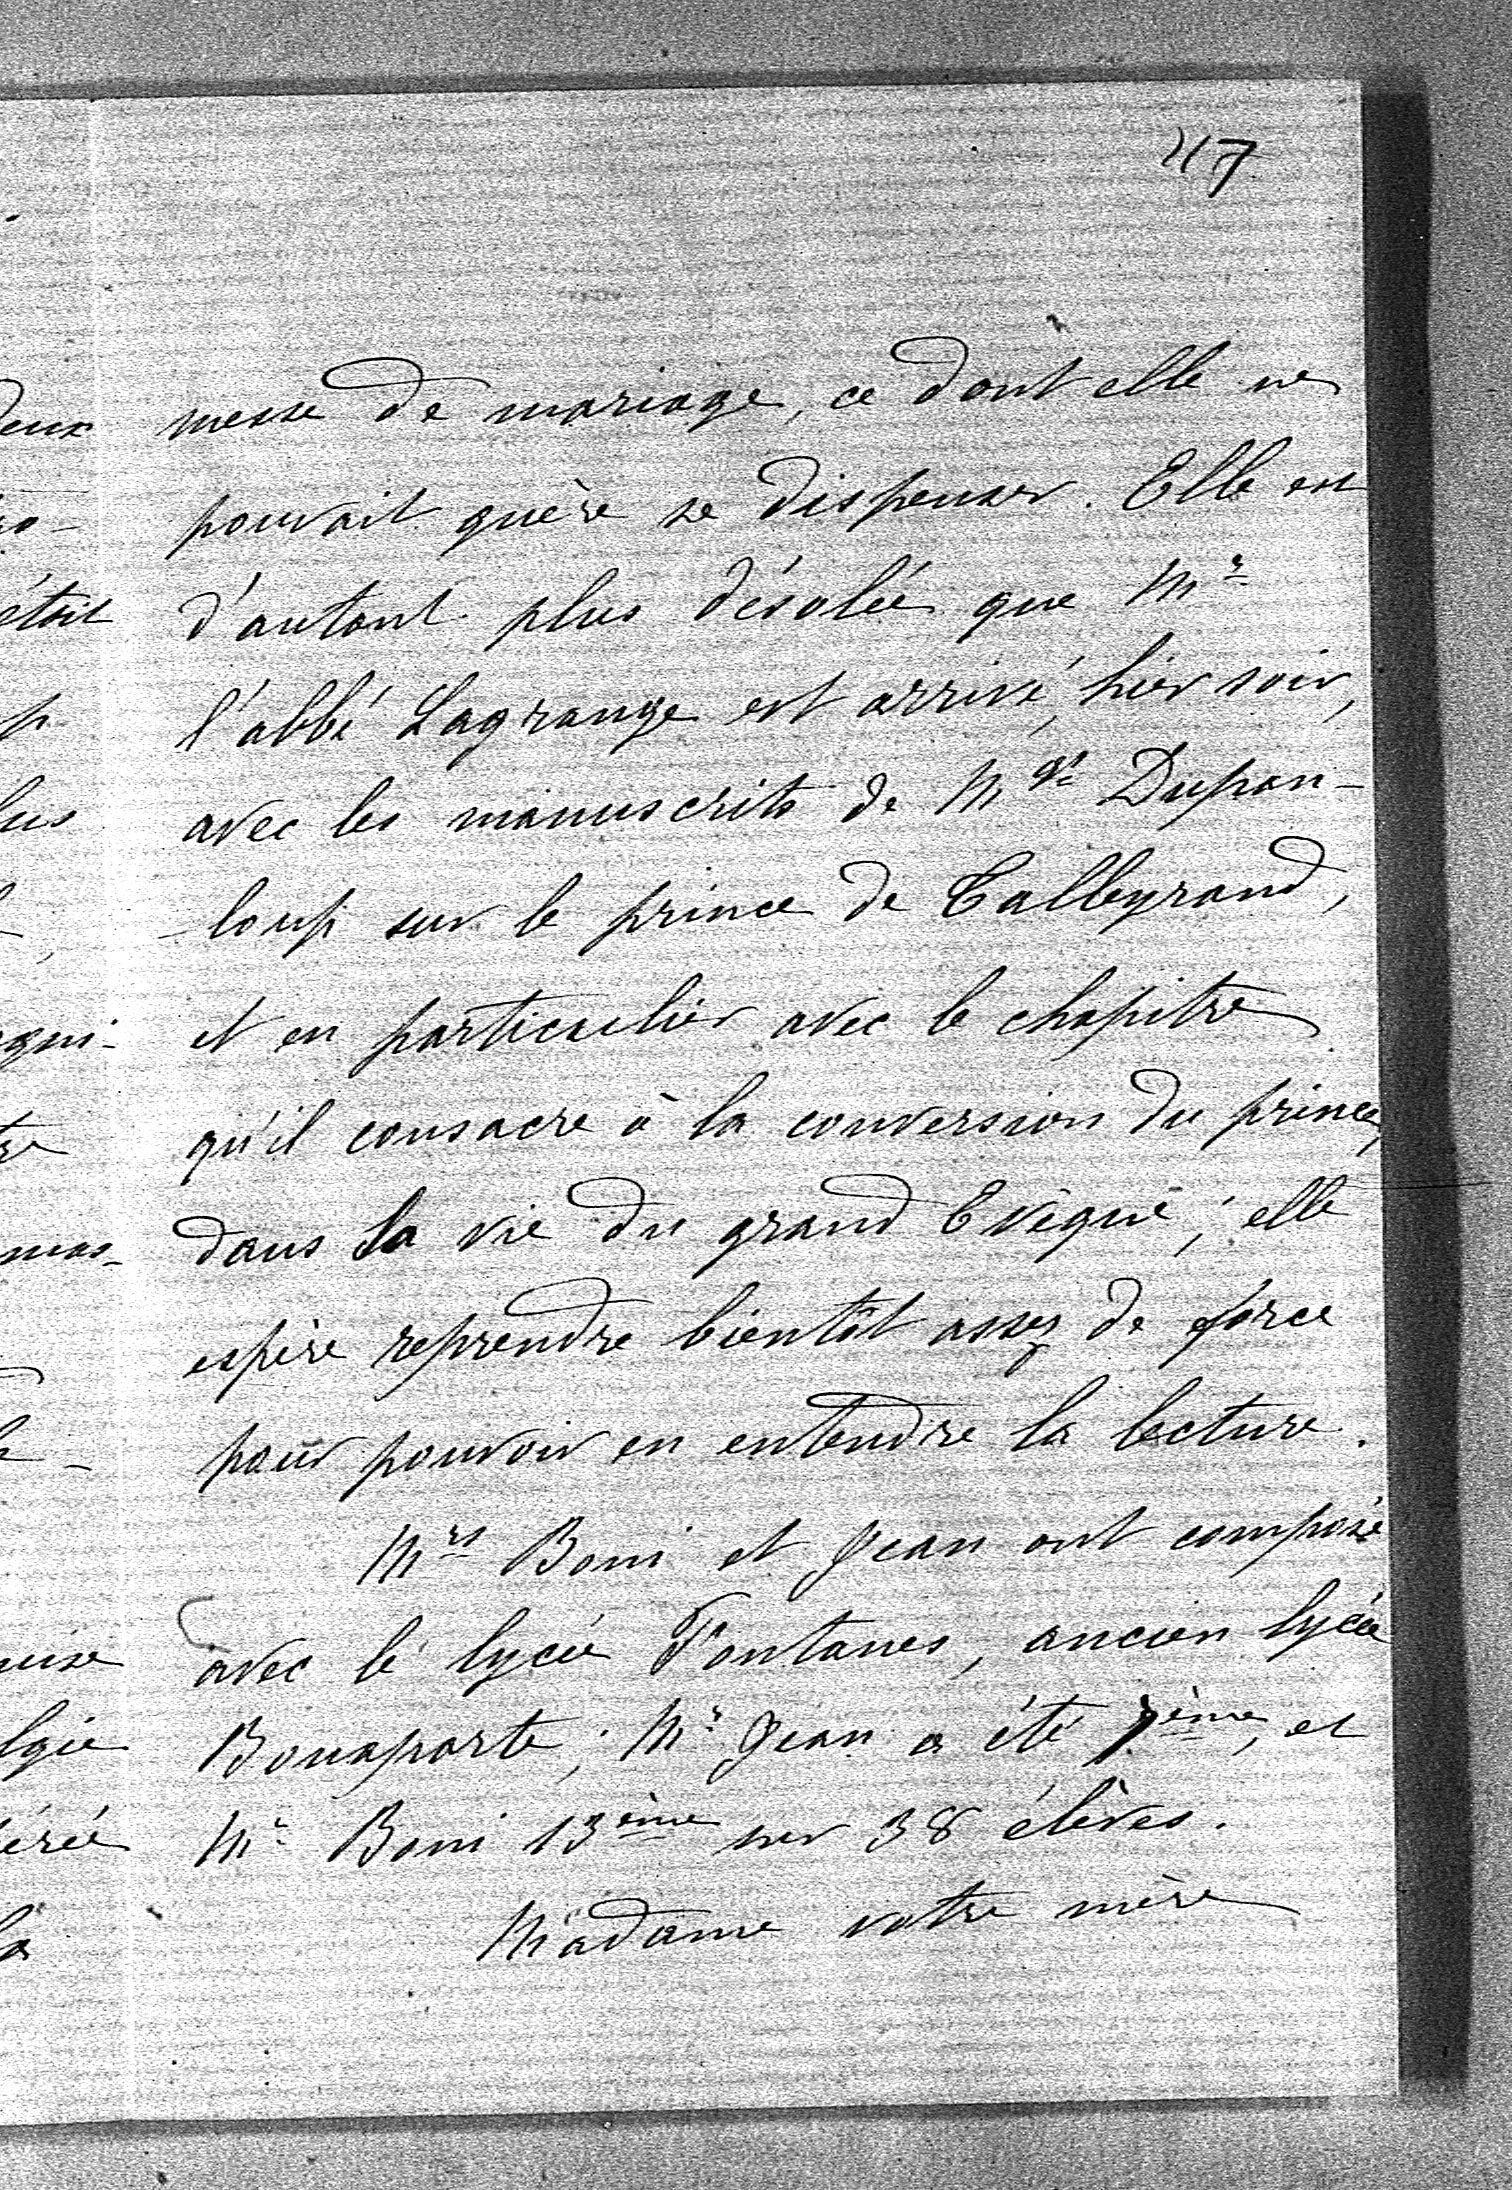 47
messe de mariage, ce dont elle ne
pouvait guère se dispenser. Elle est
d'autant plus désolée que Mr
l'abbé Lagrange est arrivé, hier soir,
avec les manuscrits de Mgr Dupan-
-loup sur le prince de Talleyrand,
et en particulier avec le chapitre
qu'il consacre à la conversion du prince,
dans la vie du grand Evêque ; elle
espère reprendre bientôt assez de force
pour pouvoir en entendre la lecture.
Mrs Boni et Jean ont composé
avec le lycée Fontanes, ancien lycée
Bonaparte ; Mr Jean a été 7ème, et
Mr Boni 13ème sur 38 élèves.
Madame votre mère